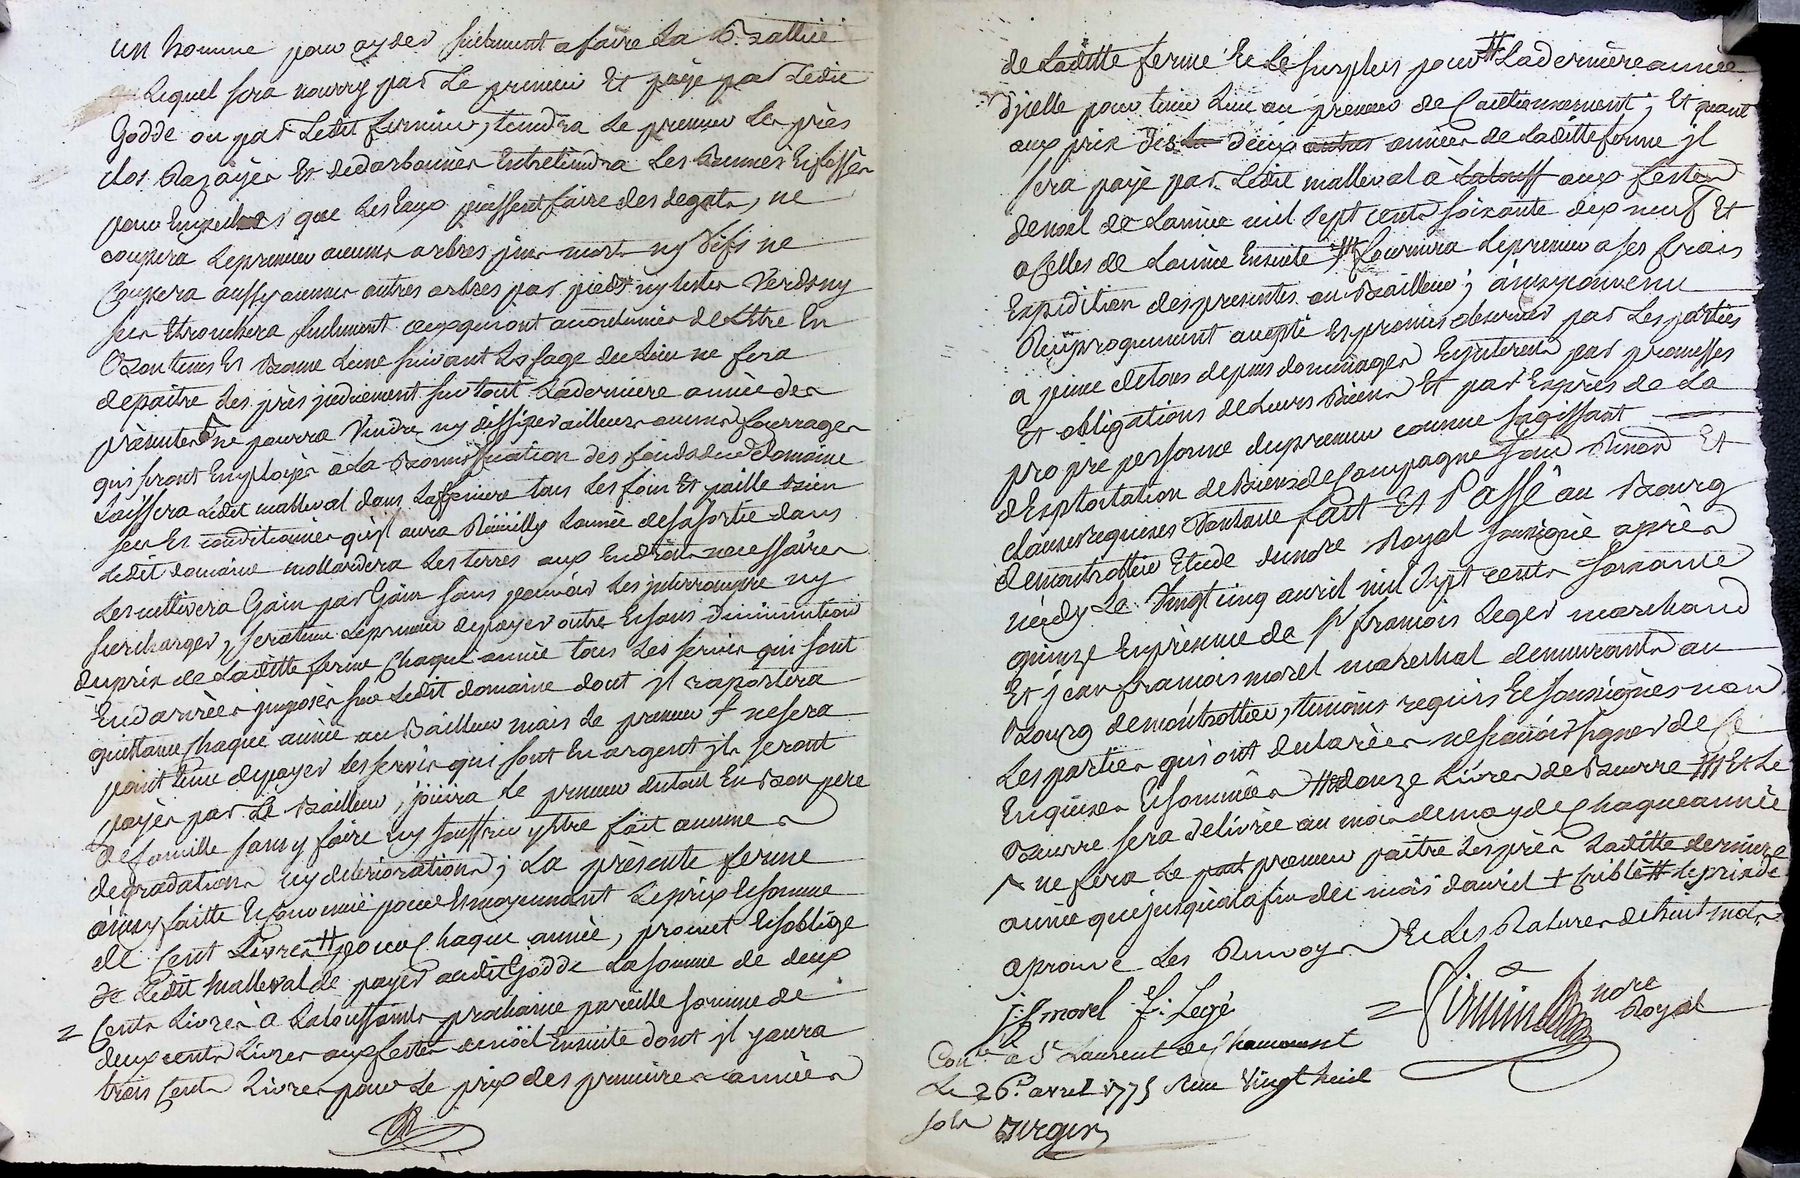 un homme pour ayder seulement a faire la
lequel sera nourry par le preneur Et payé par ledit
Godde ou par ledit fermier, tiendra le preneur les près
clos Razayés Et dedarbonnés Entretiendra les Et fossés
pour Empecher que les Eaux puissent faire des degats, ne
coupera le preneur aucuns arbres jcun morts ny Vifs ne
Coupera aussy aucuns autres arbres par pieds ny testes Verds ny
secs Etronchera seulement ceux qui ont accoutumés de Lettre En
Bon tems Et Bonne Lune suivant L'usage du Lieu ne fera
depaitre les près surtout La derniere année des
presentes ne pourra Vendre ny dissiper ailleurs aucuns fourrages
qui seront Employés à La Bonniffication des fonds dud Domaine
Laissera Ledit malleval dans tous Les foin Et paille Bien
sec Et conditionnés qu'jl aura Reüeilly Lannée de sa sortie dans
Ledit domaine les terres aux Endroits necessaires
Les cultivera Gain par Gain sans pouvoir Les jnterrompre ny
surcharger, sera tenu Le preneur de payer outre Et sans Diminution
du prix de Laditte ferme Chaque année tous Les servis qui sont
En darrées jmposés sur Ledit domaine dont jl raportera
quittance Chaque année au Bailleur mais Le preneur + ne sera
point tenu de payer les servis qui sont En argent jls seront
payés par Le Bailleur, jouira Le preneur du tout En Bon pere
de famille sans y faire ny souffrir y Etre fait aucunes
degradations ny deteriorations; La presente ferme
ainsy faitte Et convenue pour Et moyennant Le prix Et somme
de Cent Livres # pour Chaque année, promet Et s'oblige
Ledit Malleval de payer audit Godde La somme de deux
Cents Livres à La toussaints prochaine pareille somme de
deux cents Livres aux festes de noël Ensuite dont jl y aura
trois Cents Livres pour Le prix des premieres années
de Laditte ferme Et Le surplus pour # La derniere année
d'jcelle pour tenir Lieu au preneur de Cautionnement; Et quant
aux prix des deux autres années de Laditte ferme jl
sera payé par Ledit malleval à aux festes
de noel de Lannée mil sept cents soixante dix neuf Et
a Celles de Lannée Ensuite fournira Le preneur a ses frais
Expedition des presentes au Bailleur; ainsy convenu
Reciproquement accepté Et promis observer par Les parties
a peine de tous depens domages Et jnterests par promesses
Et obligations de Leurs Biens Et par Exprès de La
propre personne du preneur comme s'agissant
d'Exploitation de Biens de Campagne sous Renon Et
clauses requises Dont acte fait Et Passé au Bourg
de montrottier Etude du nore Royal soussigné après
midy Le Vingt cinq avril mil sept cents soixante
quinze En presence de Sr francois Leger marchand
Et jean francois morel marechal demeurants au
Bourg de montrottier, temoins requis Et soussignés non
Les parties qui ont declarées ne scavoir signer de Ce
Enquises Et sommées # douze Livres de Beurre Et Le
Beurre sera delivrée au mois de may de Chaque année
ne fera Le preneur paitre Les près Laditte derniere
année que jusqu'à la fin du mois davril + Criblé # le prix de
aprouvé Les Renvoys Et Les Ratures de huit mots
j. f. morel f. Legé
nore Royal
Conle a St Laurent de Chamousset
Le 26e avril 1775 Reçu Vingt huit
sols